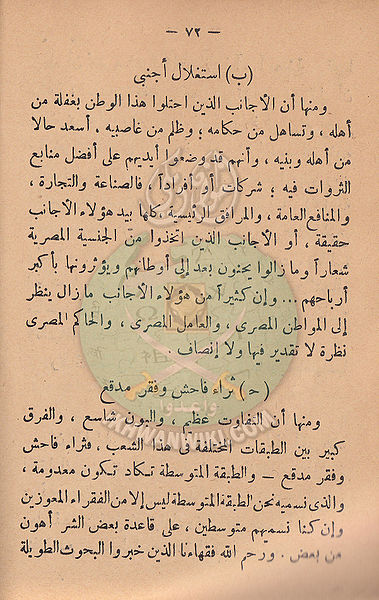 — ٧٢ —
(ب) استغلال أجنبى
ومنها أن الأجانب الذين احتلوا هذا الوطن بغفلة من
أهله ، وتساهل من حكامه ؛ وظلم من غاصبيه ، أسعد حالا
من أهله وبنيه ، وأنهم قد وضعوا أيديهم على أفضل منابع
الثروات فيه ؛ شركات أو أفراداً ، فالصناعة والتجارة ،
والمنافع العامة ، والمرافق الرئيسية ، كلها بيد هؤلاء الأجانب
حقيقة ، أو الأجانب الذين اتخذوا من الجنسية المصرية
شعاراً وما زالوا يحنون بعد إلى أوطانهم ويؤثرونها بأكبر
أرباحهم ... وإن كثيراً من هؤلاء الأجانب مازال ينظر
إلى المواطن المصرى ، والعامل المصرى ، والحاكم المصرى
نظرة لا تقدير فيها ولا إنصاف .
(ح) ثراء فاحش وفقر مدقع
ومنها أن التفاوت عظيم ، والبون شاسع ، والفرق
كبير بين الطبقات المختلفة فى هذا الشعب ، فثراء فاحش
وفقر مدقع — والطبقة المتوسطة تكاد تكون معدومة ،
والذى نسميه نحن الطبقة المتوسطة ليس إلا من الفقراء المعوزين
وإن كنا نسميهم متوسطين ، على قاعدة بعض الشر أهون
من بعض . ورحم الله فقهاءنا الذين خبروا البحوث الطويلة
IKHWANWIKI.COM